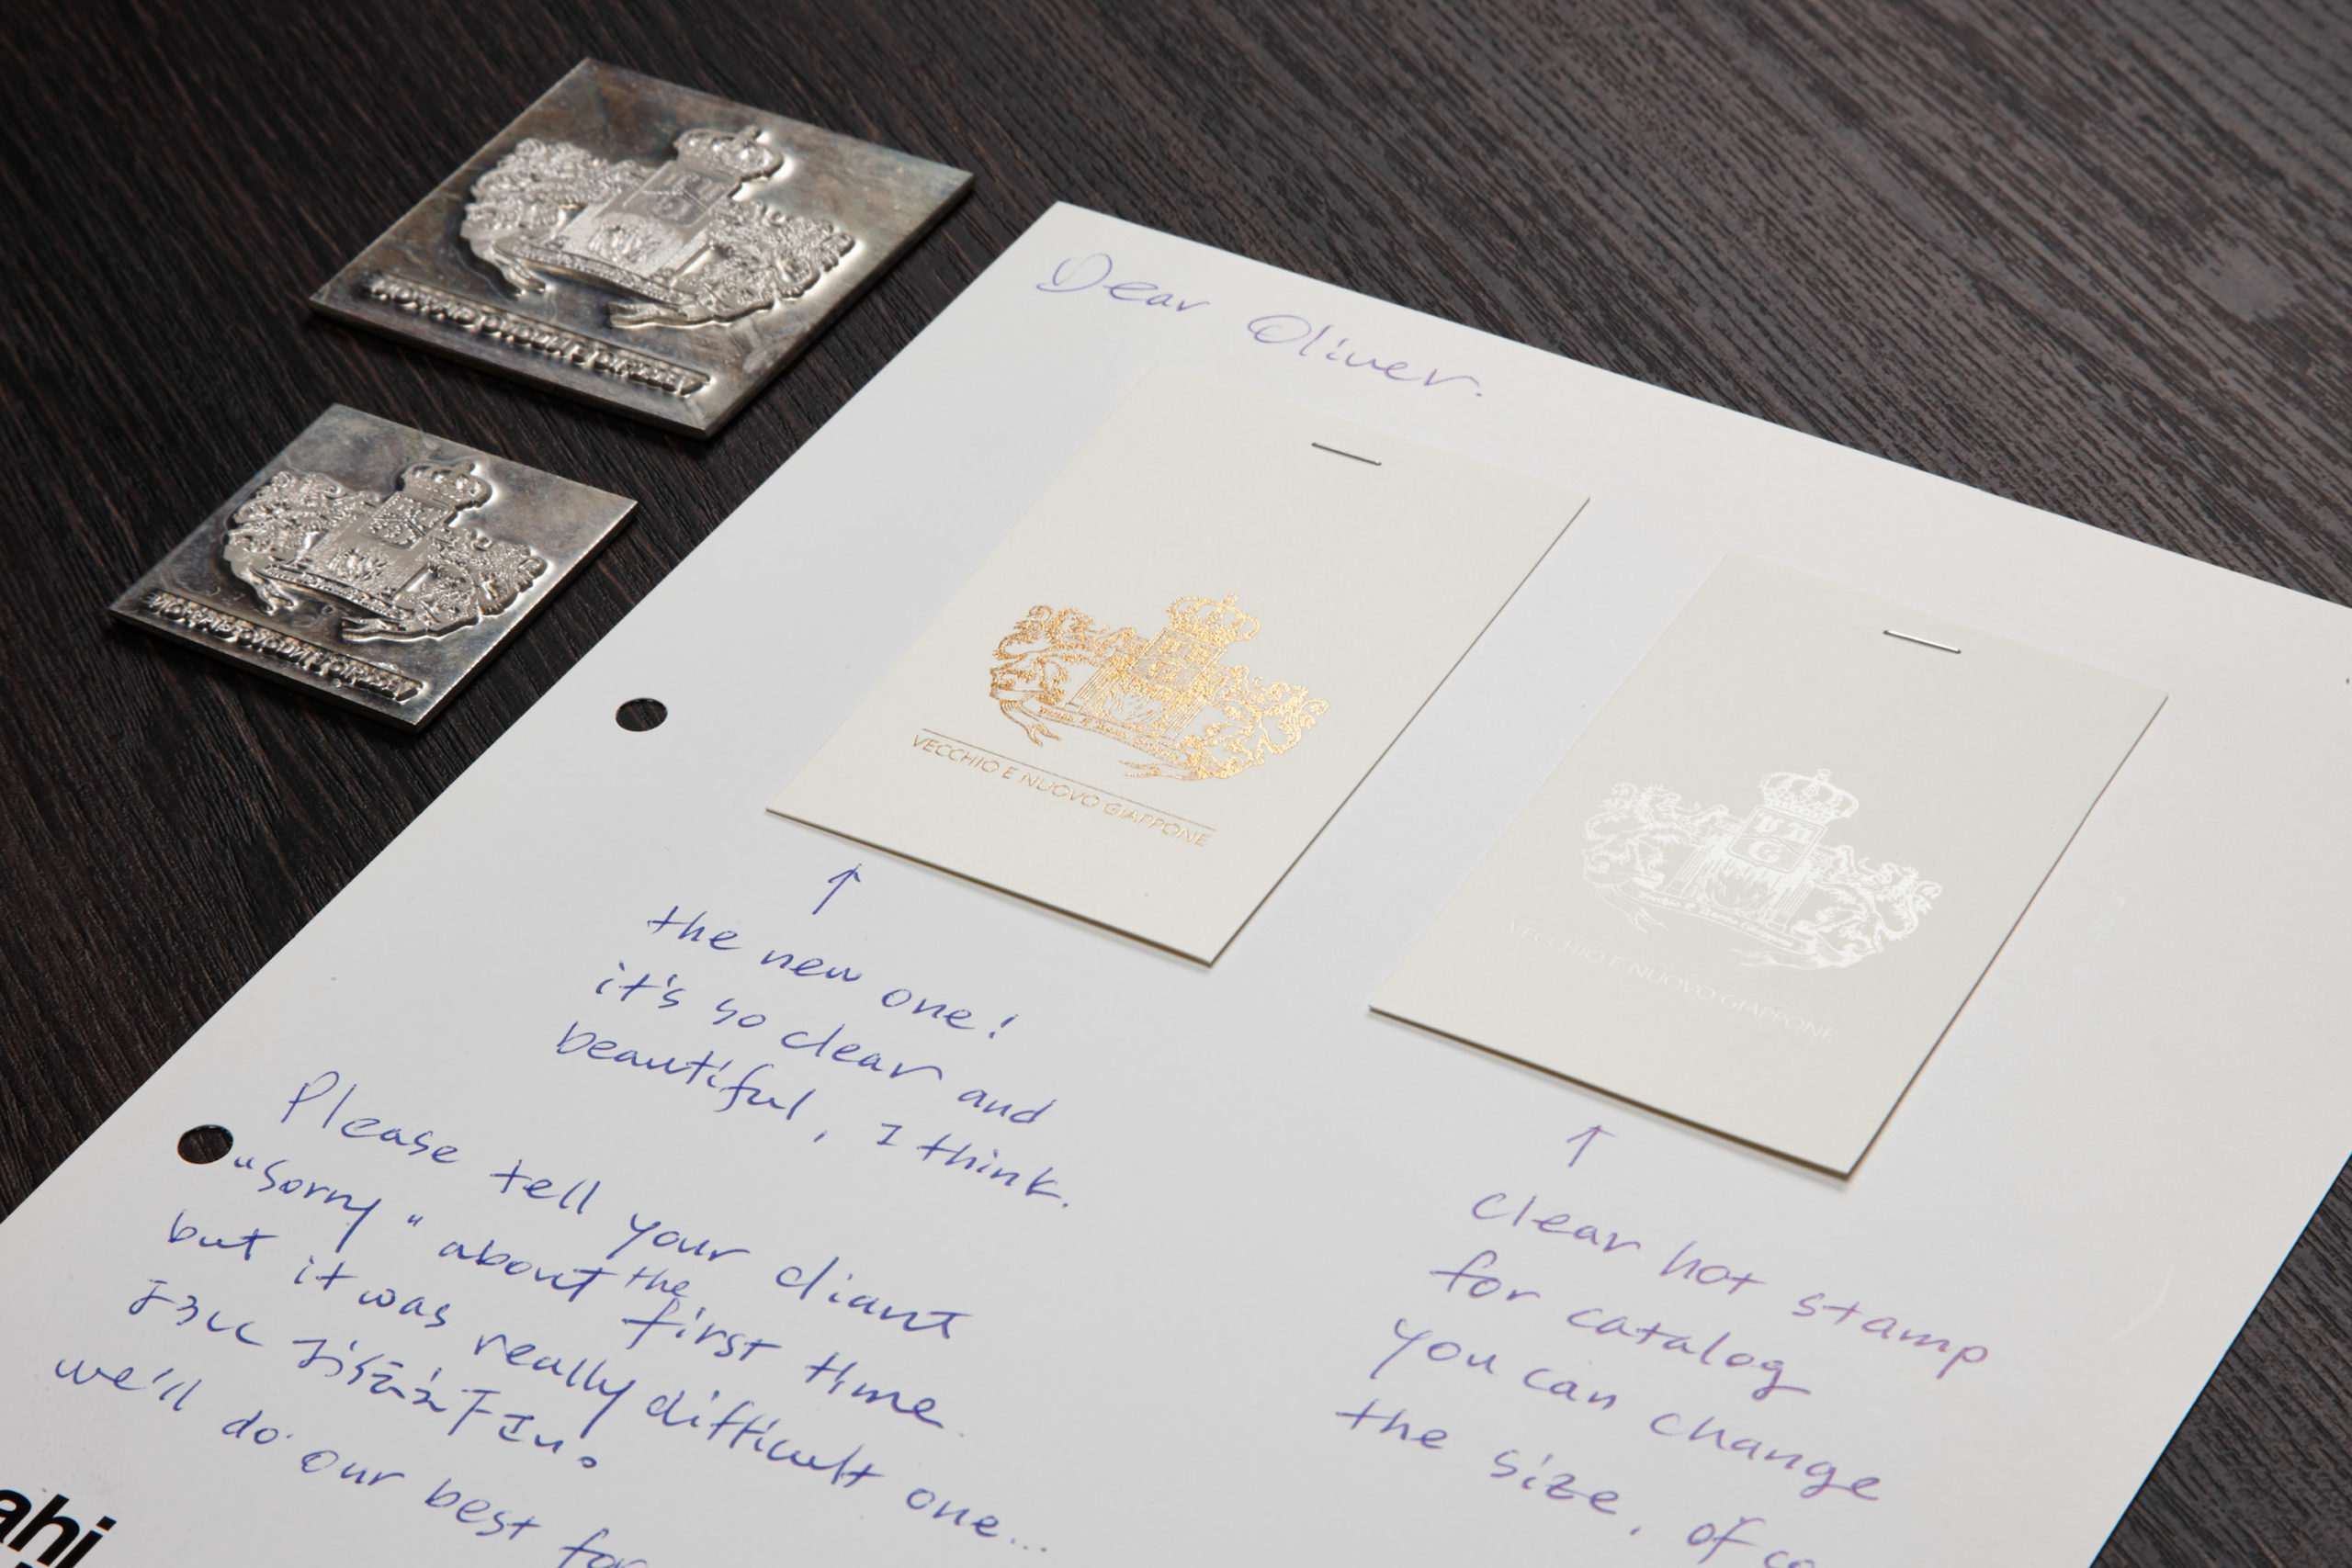 Dear Oliver.
VECCHIO E NUOVO GIAPPONE
VECCHIO E NUOVO GIAPPONE
↑
the new one!
it's so clear and
beautiful, I think.
↑
clear hot stamp
for catalog
you can change
the size, of co
Please tell your cliant
"sorry" about the first time
but it was really difficult one...
we'll do our best for
ahi